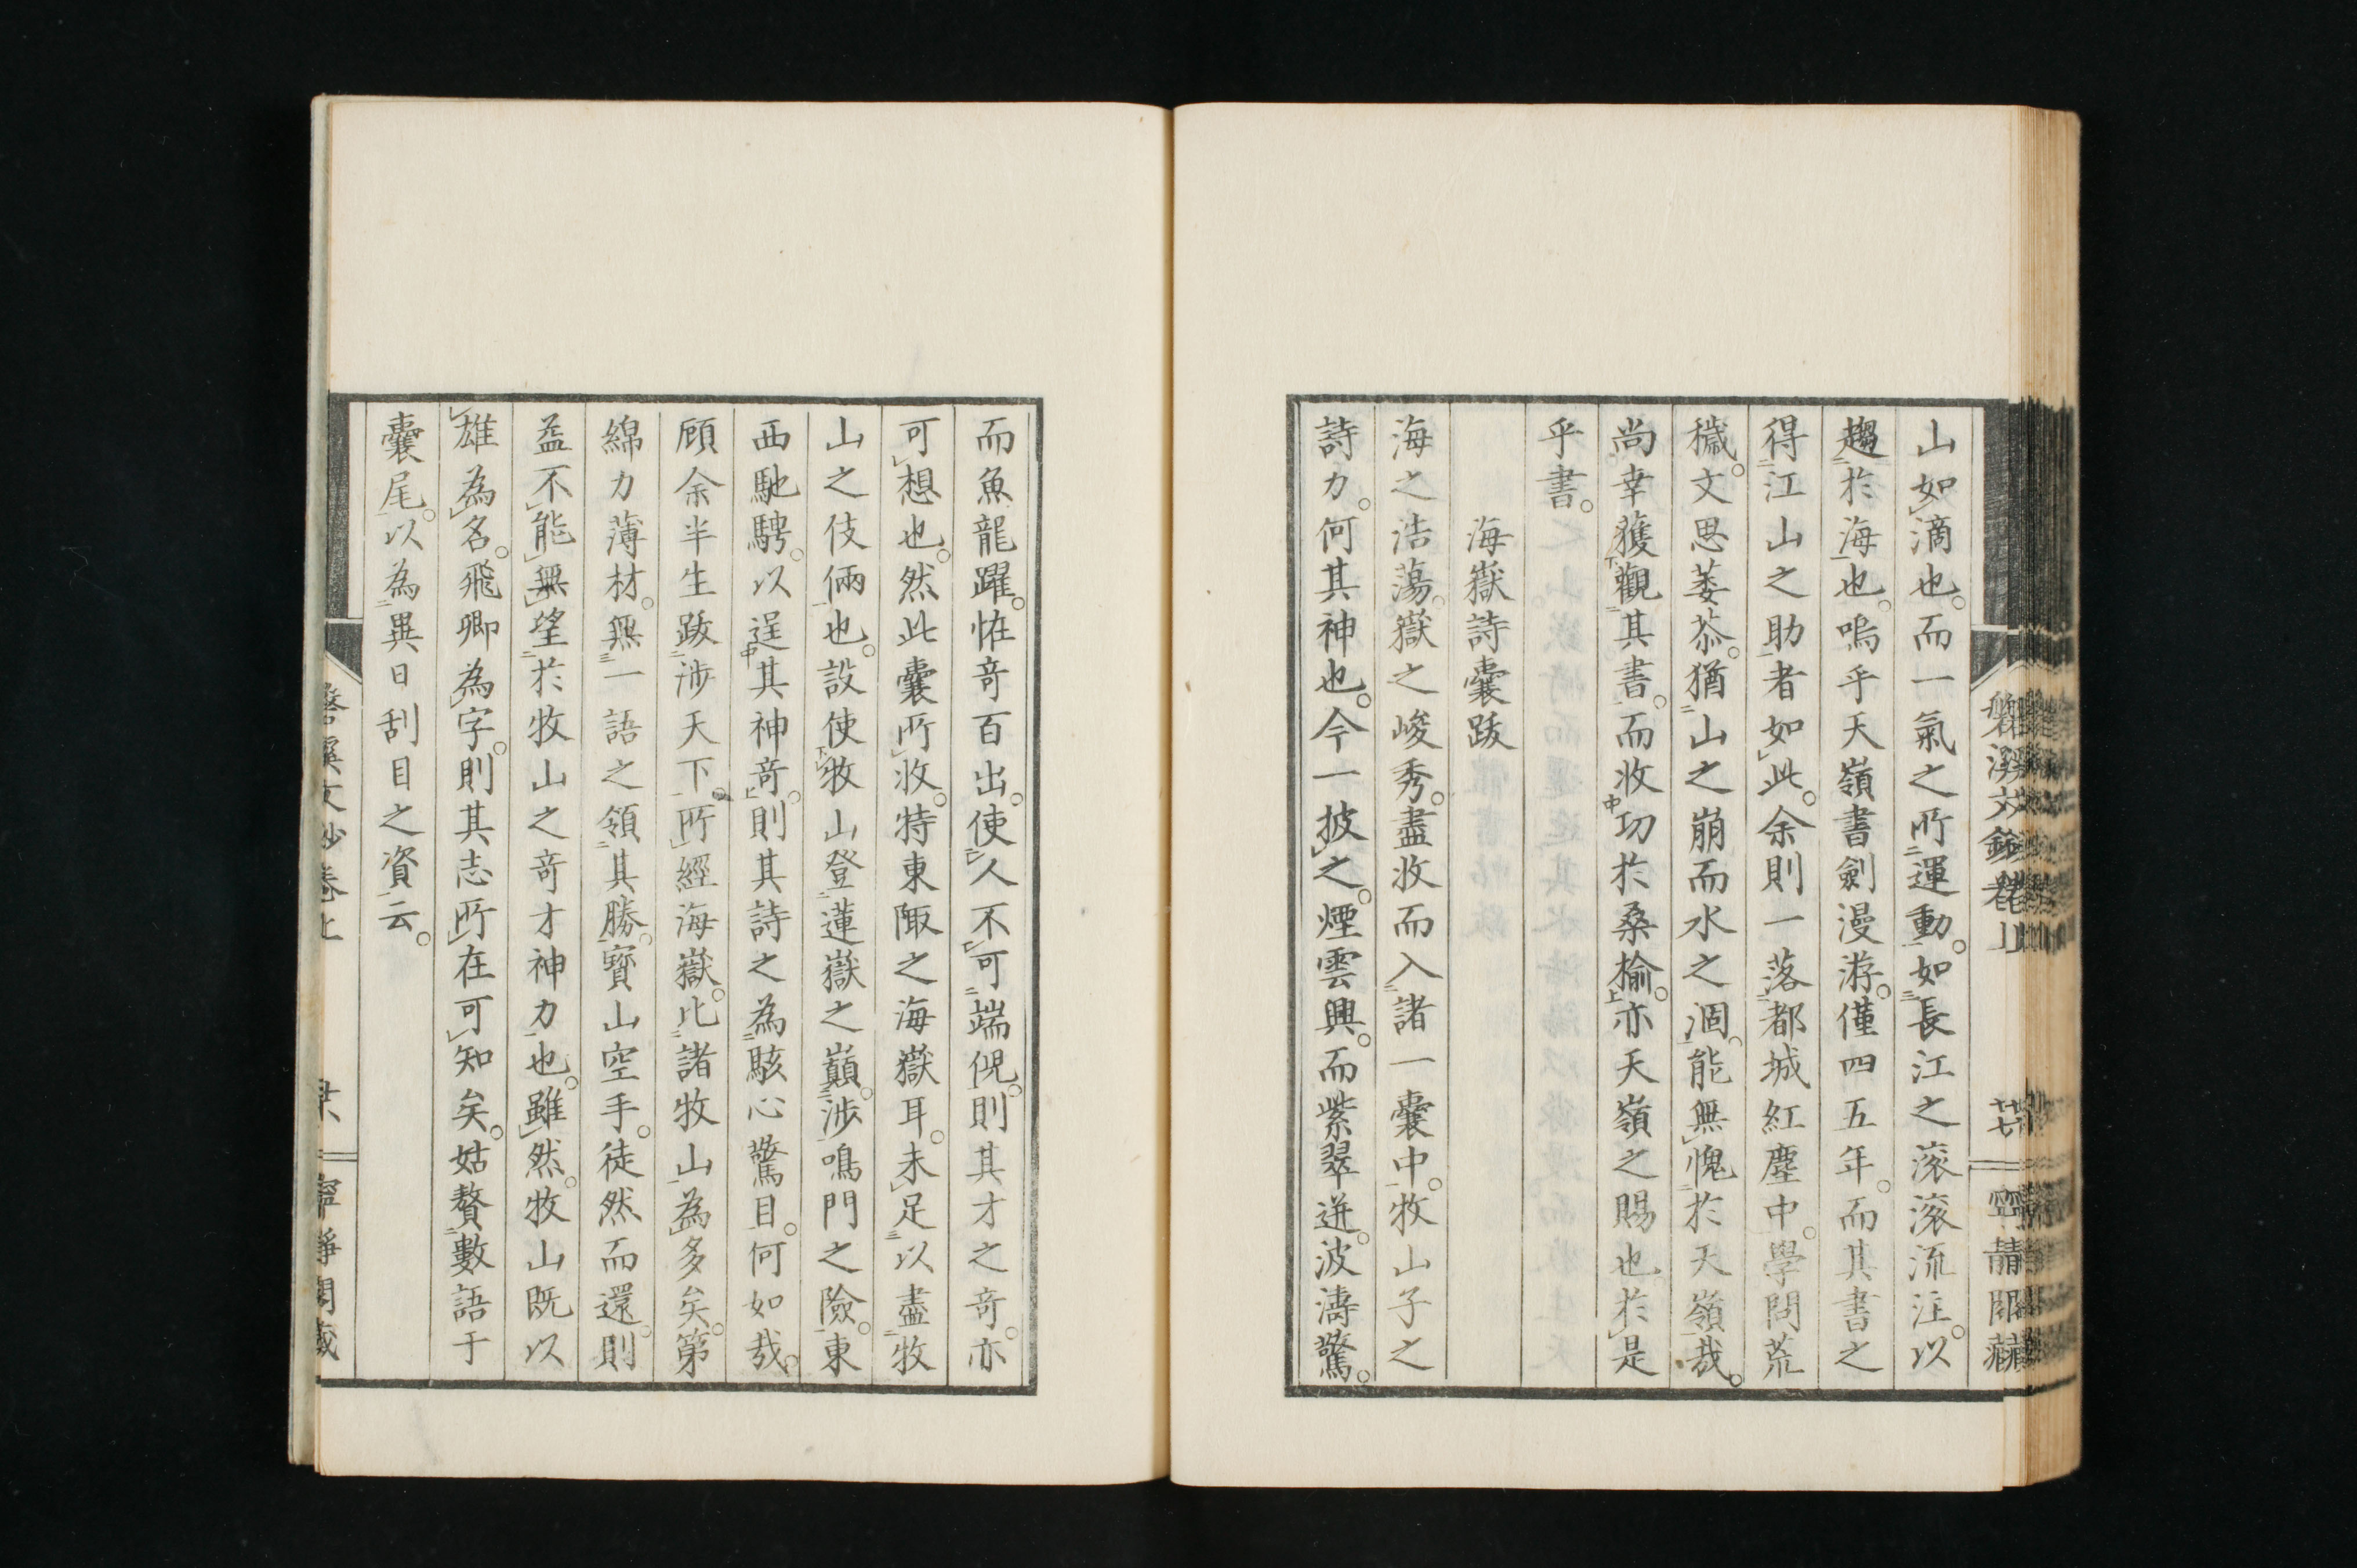 山如滴也。而一氣之所運動。如長江之滾滾流注。以
趨於海也。嗚乎天嶺書劍漫游。僅四五年。而其書之
得江山之助者如此。余則一落都城紅塵中。學問荒
穢。文思萎苶。猶山之崩而水之涸。能無愧於天嶺哉。
尚幸獲觀其書。而收功於桑榆。亦天嶺之賜也。於是
乎書。
海嶽詩囊跋
海之浩蕩。嶽之峻秀。盡收而入諸一囊中。牧山子之
詩力。何其神也。今一披之。煙雲興。而紫翠迸。波濤驚。
而魚龍躍。恠竒百出。使人不可端倪。則其才之竒。亦
可想也。然此囊所收。特東陬之海嶽耳。未足以盡牧
山之伎倆也。設使牧山登蓮嶽之巔。涉鳴門之險。東
西馳騁。以逞其神竒。則其詩之為駭心驚目。何如哉。
顧余半生跋涉天下。所經海嶽。比諸牧山為多矣。第
綿力薄材。無一語之領其勝。寶山空手。徒然而還。則
盖不能無望於牧山之竒才神力也。雖然。牧山既以
雄為名。飛卿為字。則其志所在可知矣。姑贅數語于
囊尾。以為異日刮目之資云。